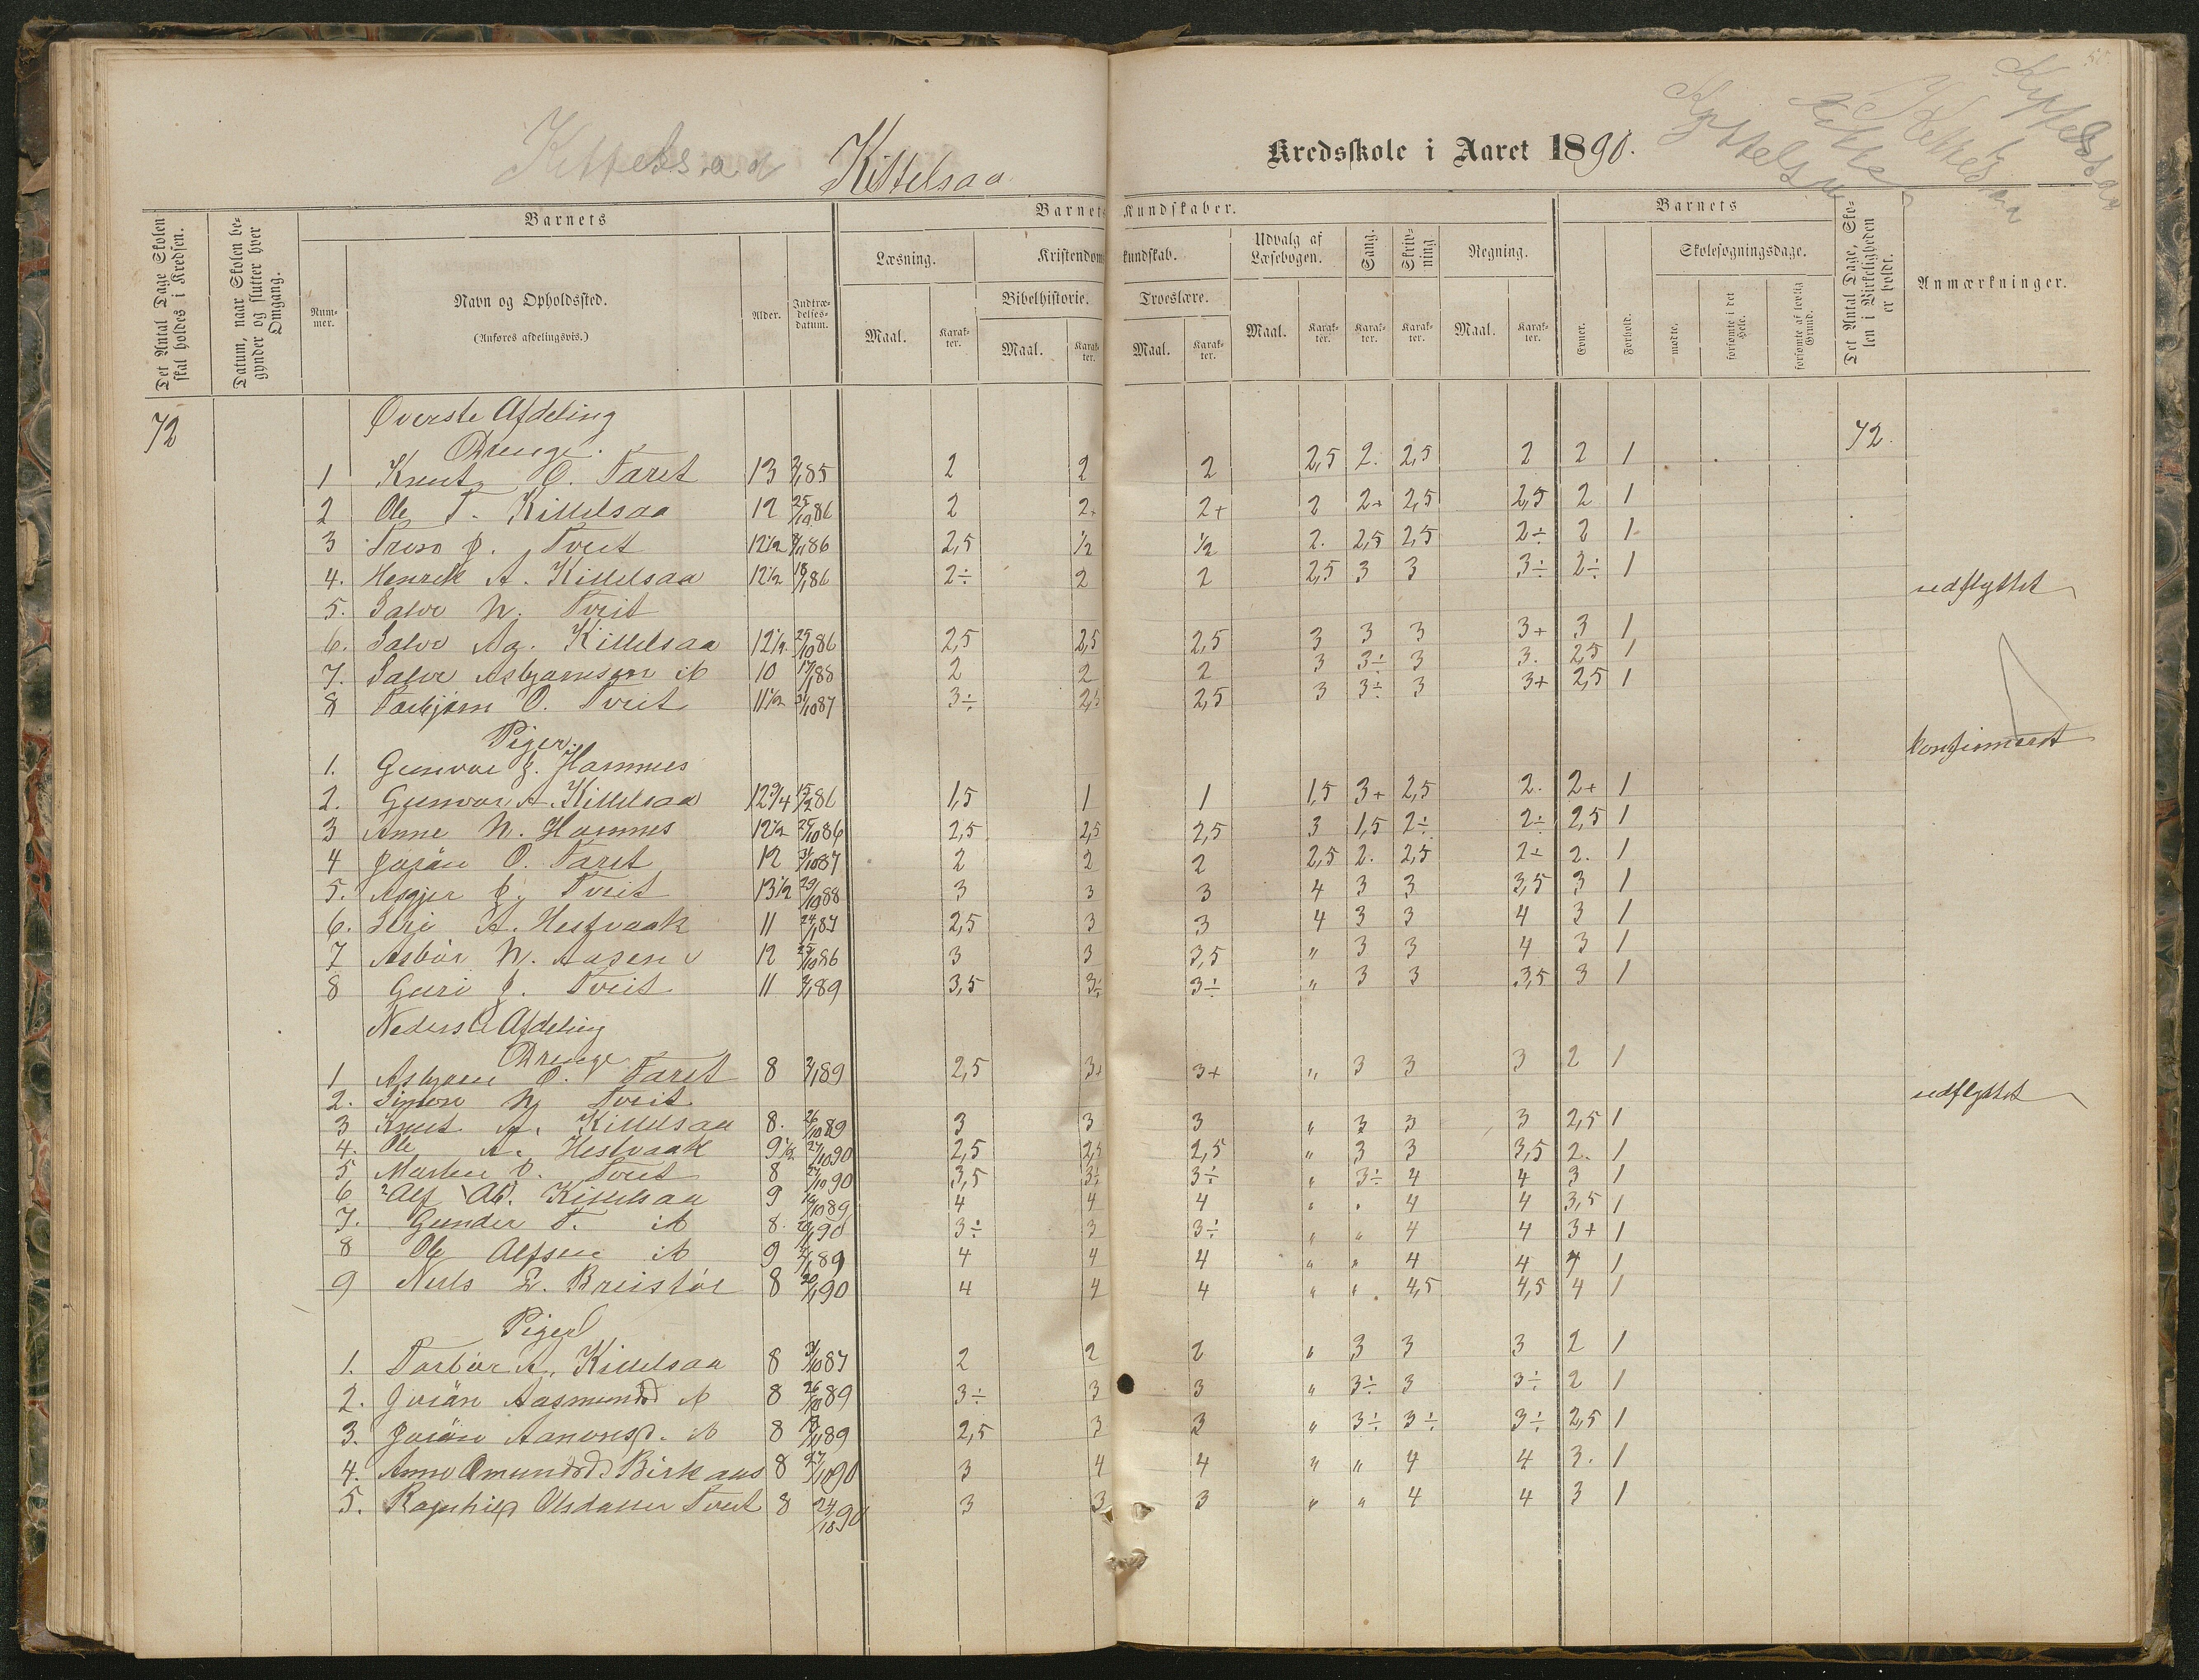 Kittelsaa
Kredsskole i Aaret 1890.
Det Antal Dage Skolen skal holdes i Kredsen.
Datum, naar Skolen begynder og slutter hver Omgang.
Barnets
Nummer.
Navn og Opholdssted.
(Anføres afdelingsvis.)
Alder.
Indtrædelsesdatum.
Barnets Kundskaber.
Læsning.
Maal.
Karakter.
Kristendomskundskab.
Bibelhistorie.
Maal.
Karakter.
Troeslære.
Maal.
Karakter.
Udvalg af Læsebogen.
Maal.
Karakter.
Sang.
Karakter.
Skrivning
Karakter.
Regning.
Maal.
Karakter.
Barnets
Evner.
Forhold.
Skolesøgningsdage.
mødte.
forsømte i det Hele.
forsømte af lovlig Grund.
Det Antal Dage, Skolen i Virkeligheden er holdt.
Anmærkninger.
72 Øverste Afdeling 72.
Drenge.
1 Knut O. Taret 13 85 2 2 2 2,5 2. 2,5 2 2 1
2 Ole T. Kittelsaa 12 25/10 86 2 2+ 2+ 2 2+ 2,5 2,5 2 1
3 J. Tveit 12 1/2 86 2,5 1/2 1/2 2. 2,5 2,5 2÷ 2 1
4. Henrik A. Kittelsaa 12 1/2 18/1 86 2÷ 2 2 2,5 3 3 3÷ 2÷ 1
5. Salve N. Tveit udflyttet
6. Salve Ag. Kittelsaa 12 1/2 25/10 86 2,5 2,5 2,5 3 3 3 3+ 3 1
7. Salve Asbjørnsøn ib 10 17/1 88 2 2 2 3 3÷ 3 3. 2,5 1
8 Torbjørn O. Tveit 11 1/2 31/10 87 3÷ 2,5 2,5 3 3÷ 3 3+ 2,5 1
Piger.
1. Gunvor J. Hamnes konfirmeret
2. Gunvor A. Kittelsaa 12 3/4 15/2 86 1,5 1 1 1,5 3+ 2,5 2. 2+ 1
3 Anne N. Hamnes 12 1/2 25/10 86 2,5 2,5 2,5 3 1,5 2÷ 2÷ 2,5 1
4 Jorån O. Taret 12 31/10 87 2 2 2 2,5 2. 2,5 2÷ 2. 1
5. Asgjer J. Tveit 13 1/2 29/10 88 3 3 3 4 3 3 3,5 3 1
6. Siri A. Hestvaak 11 24/1 87 2,5 3 3 4 3 3 4 3 1
7 Asbør N. Aasen 12 25/10 86 3 3 3,5 " 3 3 4 3 1
8 Guri J. Tveit 11 89 3,5 3÷ 3÷ " 3 3 3,5 3 1
Nederste Afdeling
Drenge
1 Asbjørn O. Taret 8 89 2,5 3+ 3+ " 3 3 3 2 1
2. Simon N. Tveit udflyttet
3 Knut A. Kittelsaa 8. 26/10 89 3 3 3 " 3 3 3 2,5 1
4. Ole A. Hestvaak 9 1/2 27/10 90 2,5 2,5 2,5 " 3 3 3,5 2. 1
5 Marten O. Tveit 8 27/10 90 3,5 3÷ 3÷ " 3÷ 4 4 3 1
6 Alf Kittelsaa 9 89 4 4 4 " " 4 4 3,5 1
7. Gunder T. ib 8. 90 3÷ 3 3÷ " " 4 4 3+ 1
8 Ole Alfsen ib 9 89 4 4 4 " " 4 4 4 1
9 Neels L. Breistøl 8 20/1 90 4 4 4 " " 4,5 4,5 4 1
Piger
1. Torbør A. Kittelsaa 8 31/10 87 2 2 2 " 3 3 3 2 1
2. Jorån Aasmundsd ib 8 26/10 89 3÷ 3 3 " 3÷ 3 3÷ 2 1
3. Jorån Aanonsd. ib 8 89 2,5 3 3 " 3÷ 3÷ 3÷ 2,5 1
4. Anne Omundsd Birkaas 8 27/10 90 3 4 4 " " 4 4 3. 1
5. Ragnhild Olsdatter Tveit 8 24/10 90 3 3 3 " " 4 4 3 1